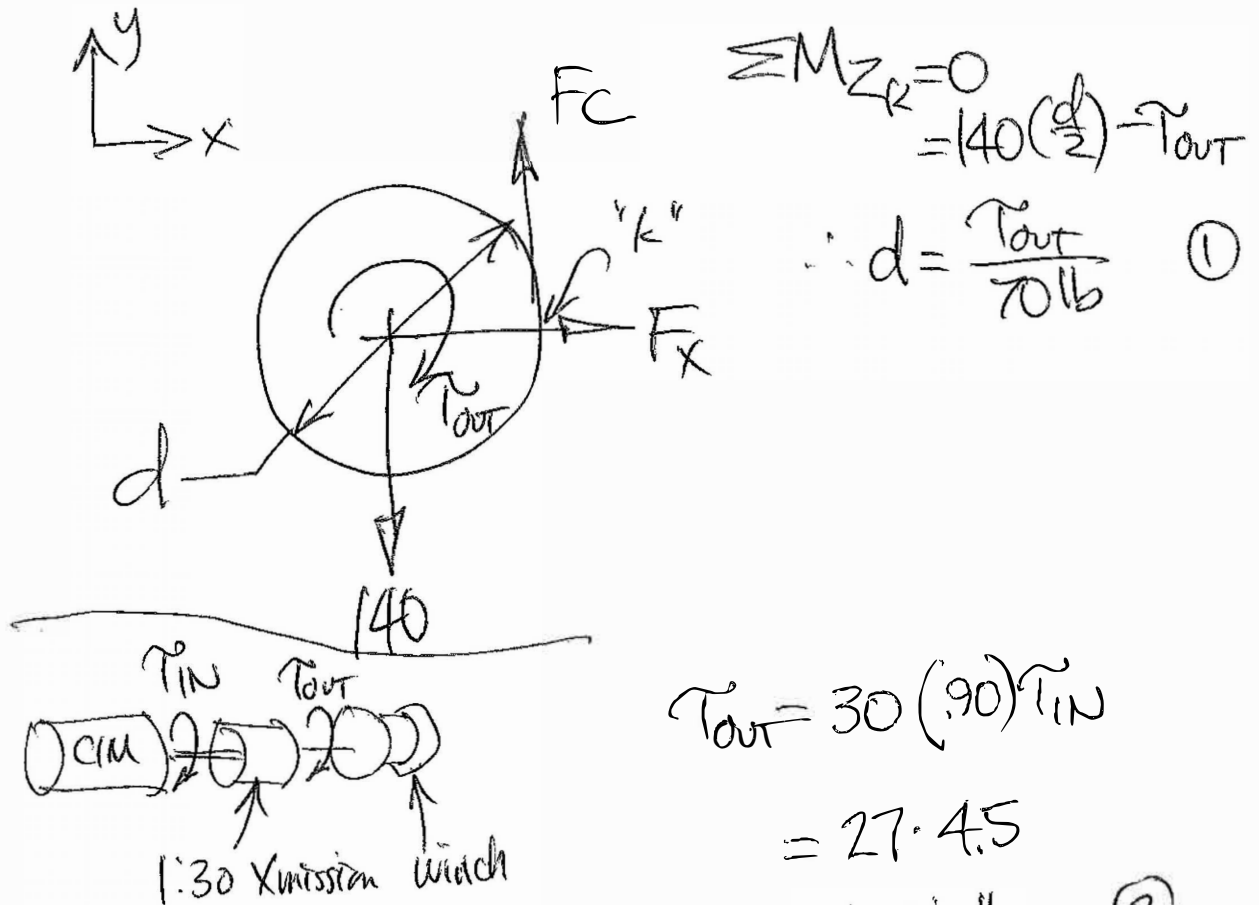 y
x
FC
"k"
Fx
τOUT
d
140
ΣMZk=0
=140(d/2)-τOUT
∴ d= τOUT/70 lb ①
τIN τOUT
CIM
1:30 Xmission winch
τOUT = 30(.90)τIN
= 27·4.5